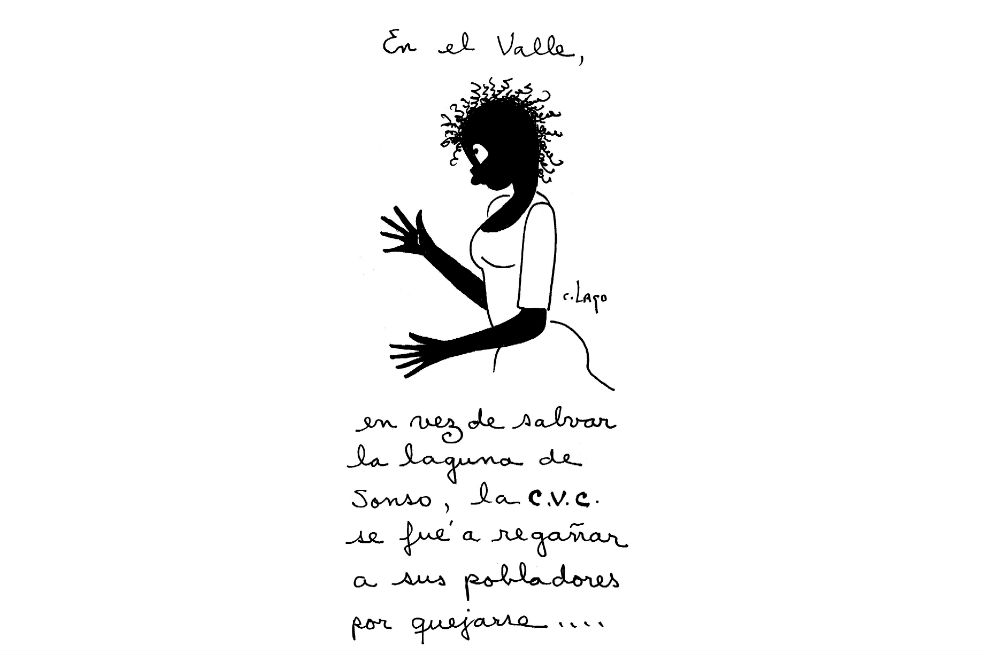 En el Valle,
c. Lago
en vez de salvar
la laguna de
Sonso, la C.V.C.
se fué a regañar
a sus pobladores
por quejarse....